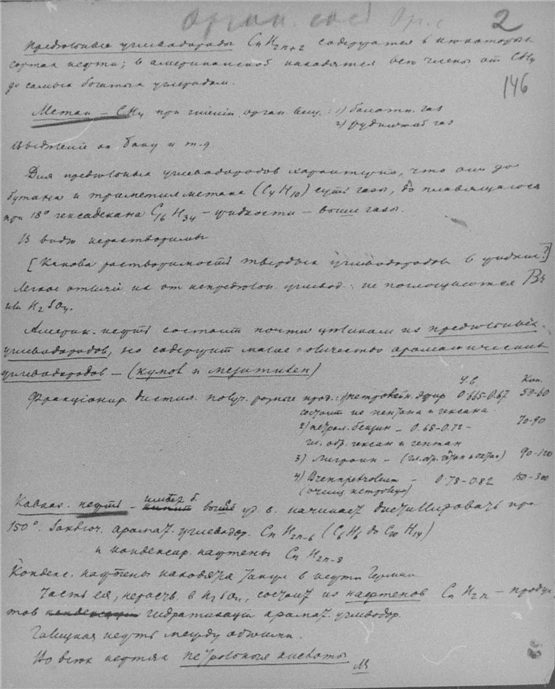 Орган. соед Ор. с 2
146
Предельные углеводороды CnH2n+2 содержатся в некоторых
сортах нефти; в американской находятся все члены от CH4
до самых богатых углеродом.
Метан – CH4 при гниении орган. вещ. 1) болотн. газ
2) рудничный газ
близ Баку и т.д
Для предельных углеводородов характерно, что они до
бутана и триметилметана (C4H10) суть газы, до плавящегося
при 18° гексадекана C16H34 – жидкости – выше
В воде нерастворимы
[Какова растворимость твердых углеводородов в жидких?]
Легкое отличие их от непредельн. углевод: не поглощаются Br
или H2SO4.
Америк. нефть состоит почти целиком из предельных
углеводородов, но содержит малое количество ароматических
углеводородов – (кумол и мезитилен)
Фракционир. дистил. получ. разные прод: 1) петролейн. эфир 0.665-0.67 50-60
состоит из пентана и гексана
2) петрол. бензин – 0.68-0.72 – 70-90
гл. обр. гексан и гептан
3) Лигроин – 90-120
4) – 0.78-0.82 150-300
Кавказ. нефть – имеет б. уд. в. начинает дистиллировать при
150°. Заключ. аромат. углеводор. CnH2n-6 (C6H6 до C10H14)
и конденсир. нафтены CnH2n-8
Конденс. нафтены находятся также в нефти
Часть ея, нераств. в H2SO4, состоит из нафтенов CnH2n – продук
тов гидратации аромат. углеводор.
Галицкая нефть между обоими.
Во всех нефтях петролевыя кислоты